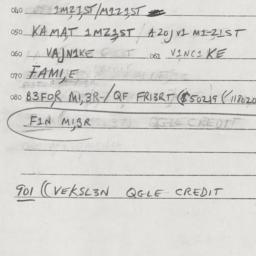 040 1MZ1ST/M1Z1ST
050 KAMAT 1MZ3ST / AZOJV1 M1-Z1ST
060 VAJN1KE 061 V1NC1KE
070 FAMI,E
080 B3FOR MI,3R-/QF FRI3RT ($50219 (/118020
F1N MI3R
901 ((VEKSL3N QGLE CREDIT